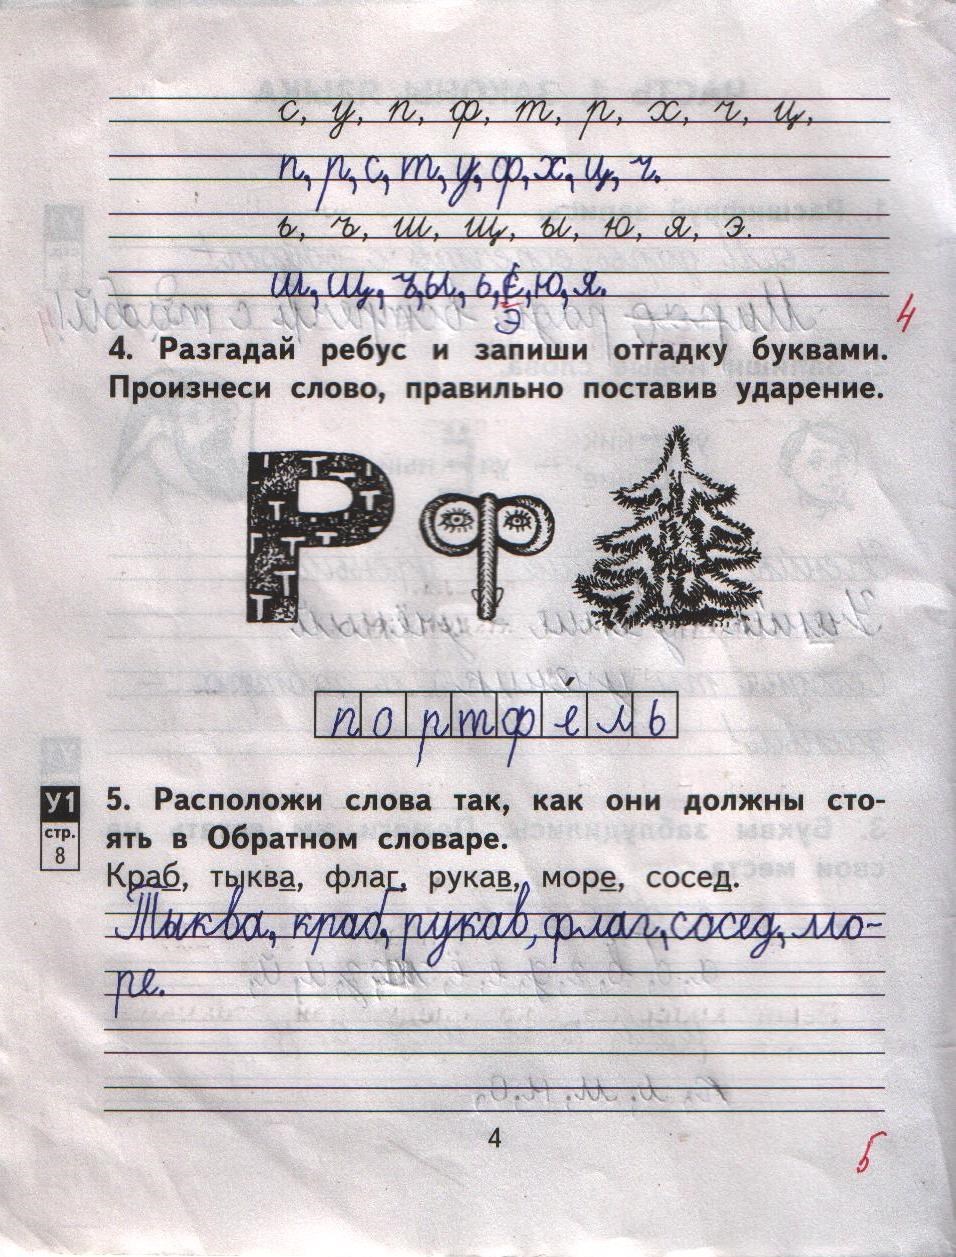 с, у, п, ф, т, р, х, ч, ц,
п, р, с, т, у, ф, х, ц, ч.
ь, ъ, ш, щ, ы, ю, я, э.
ш, щ, ъ, ы, ь, Е, ю, я.
Э
4
4. Разгадай ребус и запиши отгадку буквами.
Произнеси слово, правильно поставив ударение.
портфе́ль
У1
стр.
8
5. Расположи слова так, как они должны сто-
ять в Обратном словаре.
Краб, тыква, флаг, рукав, море, сосед.
Тыква, краб, рукав, флаг, сосед, мо-
ре.
4
5